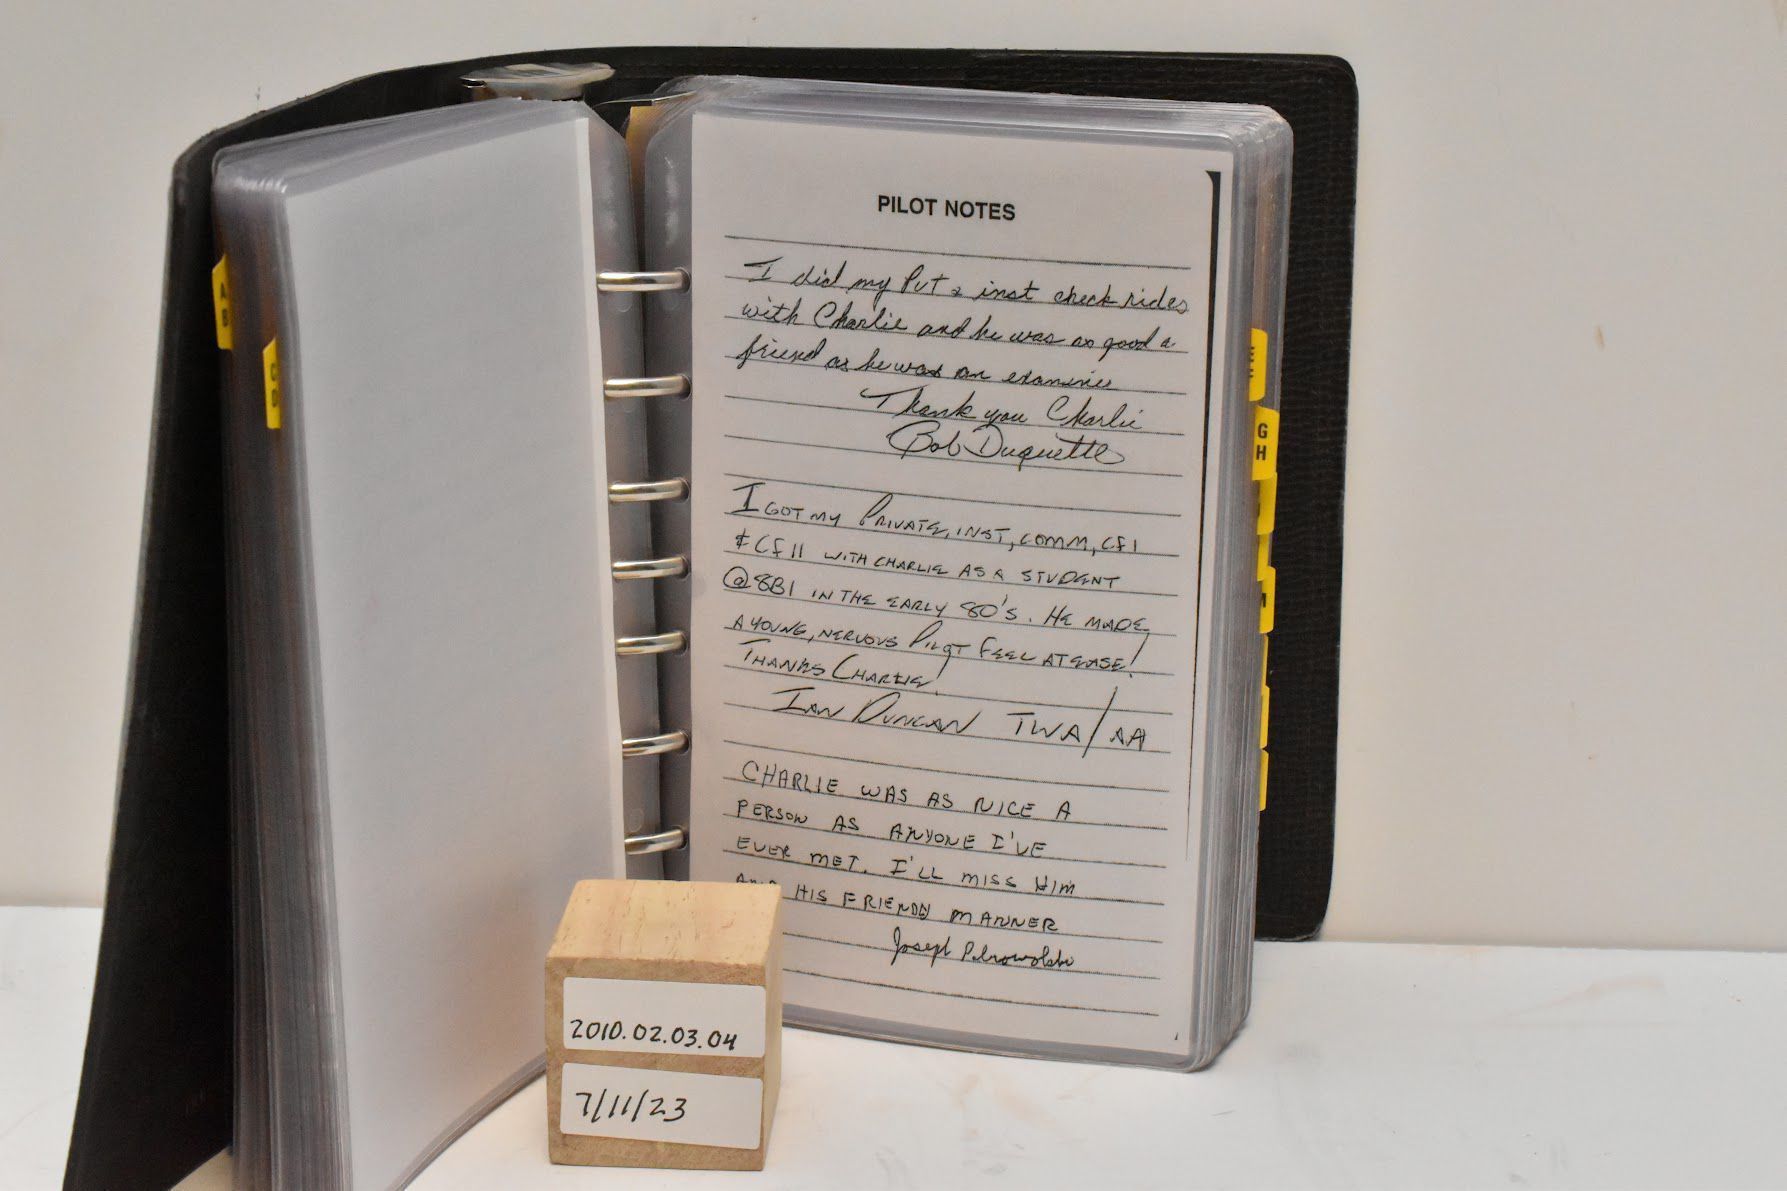 PILOT NOTES
I did my Pvt & inst check rides
with Charlie and he was as good a
friend as he was an examiner
Thank you Charlie
Bob Duquette
I GOT MY PRIVATE, INST, COMM, CFI
& CFII WITH CHARLIE AS A STUDENT
@ 8B1 IN THE EARLY 80'S. HE MADE
A YOUNG, NERVOUS PILOT FEEL AT EASE!
THANKS CHARLIE!
IAN DUNCAN TWA/AA
CHARLIE WAS AS NICE A
PERSON AS ANYONE I'VE
EVER MET. I'LL MISS HIM
AND HIS FRIENDLY MANNER
Joseph
A
B
C
D
E
F
G
H
M
2010.02.03.04
7/11/23